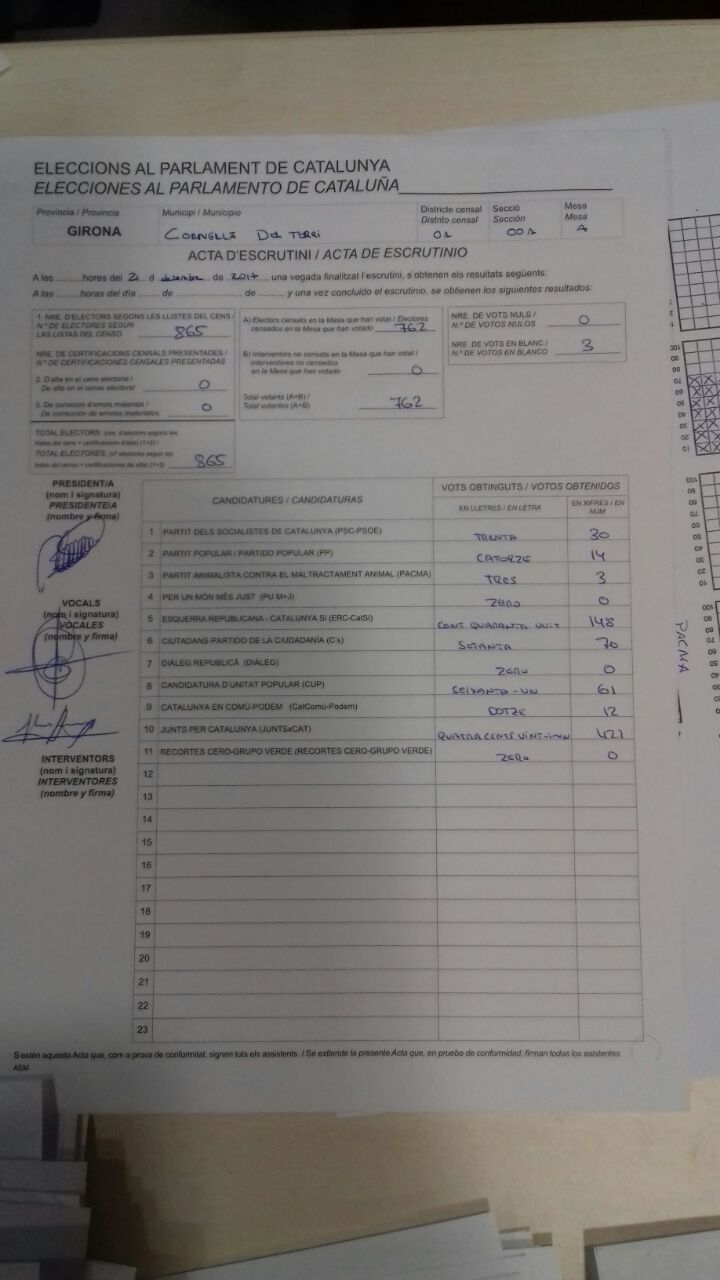 ELECCIONS AL PARLAMENT DE CATALUNYA
ELECCIONES AL PARLAMENTO DE CATALUÑA
Provincia / Provincia Municipi / Municipio Districte censal Secció Mesa
Distrito censal Sección Mesa
GIRONA CORNELLÀ DEL TERRI 01 001 A
ACTA D'ESCRUTINI / ACTA DE ESCRUTINIO
A les hores del 21 d desembre de 2017, una vegada finalitzat l'escrutini, s'obtenen els resultats següents:
A las horas del día de de , y una vez concluido el escrutinio, se obtienen los siguientes resultados:
1. NRE. D'ELECTORS SEGONS LES LLISTES DEL CENS /
N.º DE ELECTORES SEGÚN
LAS LISTAS DEL CENSO 865
NRE. DE CERTIFICACIONS CENSALS PRESENTADES /
N.º DE CERTIFICACIONES CENSALES PRESENTADAS
2. D'alta en el cens electoral /
De alta en el censo electoral: 0
3. De correcció d'errors materials /
De corrección de errores materiales: 0
TOTAL ELECTORS: (nre. d'electors segons les
llistes del cens + certificacions d'alta) (1+2) /
TOTAL ELECTORES: (nº electores según las
listas del censo + certificaciones de alta) (1+2) 865
A) Electors censats en la Mesa que han votat / Electores
censados en la Mesa que han votado 762
B) Interventors no censats en la Mesa que han votat /
Interventores no censados
en la Mesa que han votado 0
Total votants (A+B) /
Total votantes (A+B) 762
NRE. DE VOTS NULS /
N.º DE VOTOS NULOS 0
NRE. DE VOTS EN BLANC /
N.º DE VOTOS EN BLANCO 3
PRESIDENT/A
(nom i signatura)
PRESIDENTE/A
(nombre y firma)
VOCALS
(nom i signatura)
VOCALES
(nombre y firma)
INTERVENTORS
(nom i signatura)
INTERVENTORES
(nombre y firma)
CANDIDATURES / CANDIDATURAS VOTS OBTINGUTS / VOTOS OBTENIDOS
EN LLETRES / EN LETRA EN XIFRES / EN NÚM
1 PARTIT DELS SOCIALISTES DE CATALUNYA (PSC-PSOE) TRENTA 30
2 PARTIT POPULAR / PARTIDO POPULAR (PP) CATORZE 14
3 PARTIT ANIMALISTA CONTRA EL MALTRACTAMENT ANIMAL (PACMA) TRES 3
4 PER UN MÓN MÉS JUST (PU M+J) ZERO 0
5 ESQUERRA REPUBLICANA - CATALUNYA SÍ (ERC-CatSÍ) CENT QUARANTA VUIT 148
6 CIUTADANS-PARTIDO DE LA CIUDADANÍA (C's) SETANTA 70
7 DIÀLEG REPUBLICÀ (DIÀLEG) ZERO 0
8 CANDIDATURA D'UNITAT POPULAR (CUP) SEIXANTA-UN 61
9 CATALUNYA EN COMÚ-PODEM (CatComú-Podem) DOTZE 12
10 JUNTS PER CATALUNYA (JUNTSxCAT) QUATRACENTS VINT-I-UN 421
11 RECORTES CERO-GRUPO VERDE (RECORTES CERO-GRUPO VERDE) ZERO 0
12
13
14
15
16
17
18
19
20
21
22
23
S'estén aquesta Acta que, com a prova de conformitat, signen tots els assistents. / Se extiende la presente Acta que, en prueba de conformidad, firman todos los asistentes.
AEM
PACMA